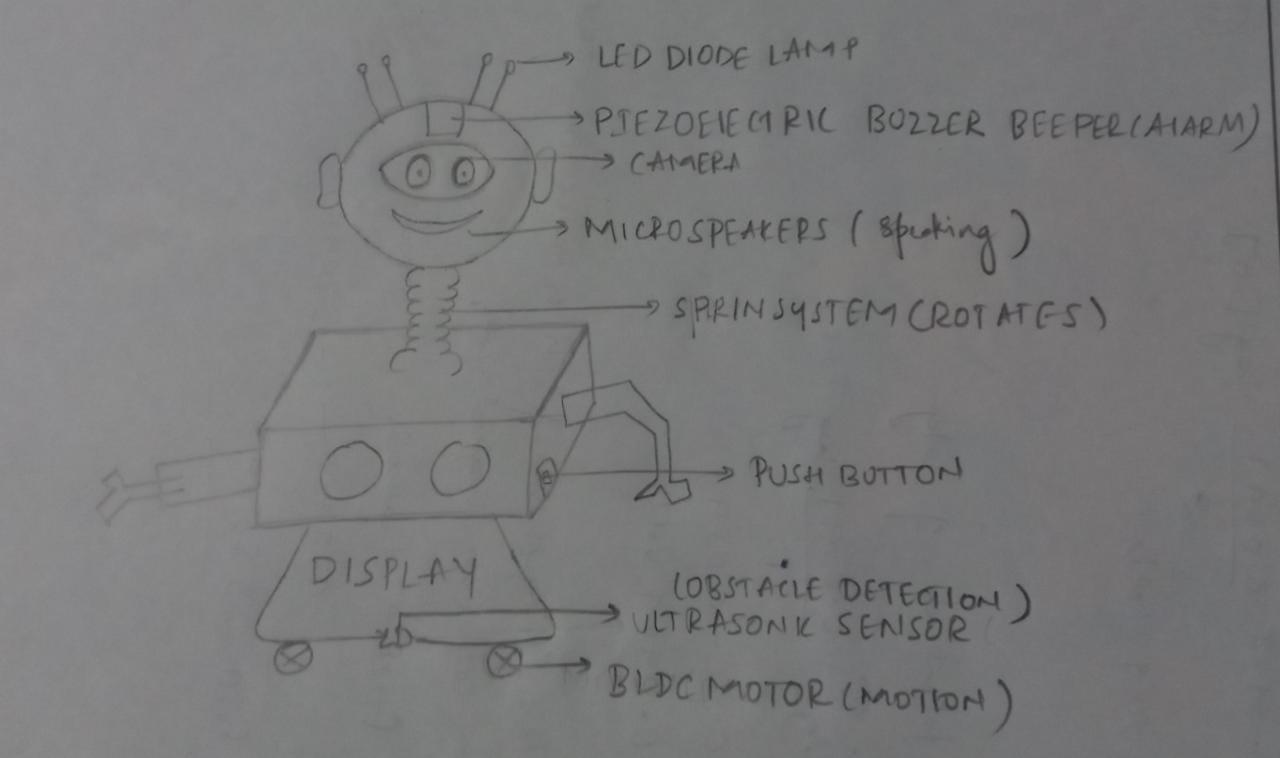 LED DIODE LAMP
PIEZOELECTRIC BUZZER BEEPER (ALARM)
CAMERA
MICROSPEAKERS (speaking)
SPRIN SYSTEM (ROTATES)
PUSH BUTTON
DISPLAY
(OBSTACLE DETECTION)
ULTRASONIC SENSOR
BLDC MOTOR (MOTION)